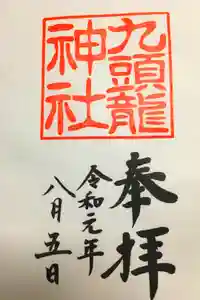 九頭龍
神社
奉拝
令和元年
八月五日